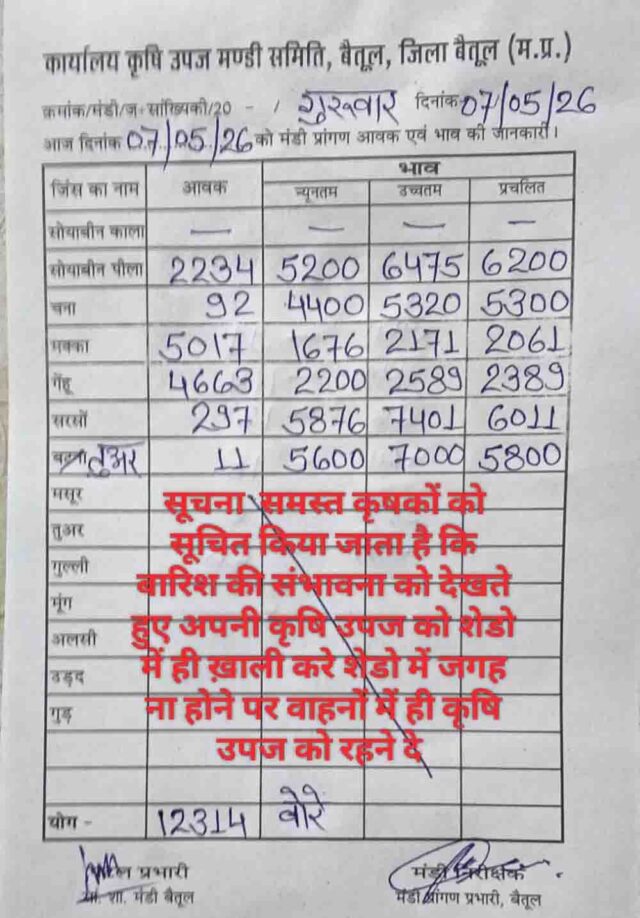 कार्यालय कृषि उपज मण्डी समिति, बैतूल, जिला बैतूल (म.प्र.)
क्रमांक/मंडी/ज. सांख्यिकी/20 - / गुरूवार दिनांक 07/05/26
आज दिनांक 07/05/26 को मंडी प्रांगण आवक एवं भाव की जानकारी।
जिंस का नाम आवक भाव
न्यूनतम उच्चतम प्रचलित
सोयाबीन काला — — — —
सोयाबीन पीला 2234 5200 6475 6200
चना 92 4400 5320 5300
मक्का 5017 1676 2171 2061
गेंहू 4663 2200 2589 2389
सरसों 297 5876 7401 6011
तुअर 11 5600 7000 5800
मसूर
तुअर
गुल्ली
मूंग
अलसी
उड़द
गुड़
सूचना समस्त कृषकों को
सूचित किया जाता है कि
बारिश की संभावना को देखते
हुए अपनी कृषि उपज को शेडो
में ही ख़ाली करे शेडो में जगह
ना होने पर वाहनों में ही कृषि
उपज को रहने दे
योग - 12314 बोरे
प्रभारी मंडी निरीक्षक
शा. मंडी बैतूल मंडी प्रांगण प्रभारी, बैतूल